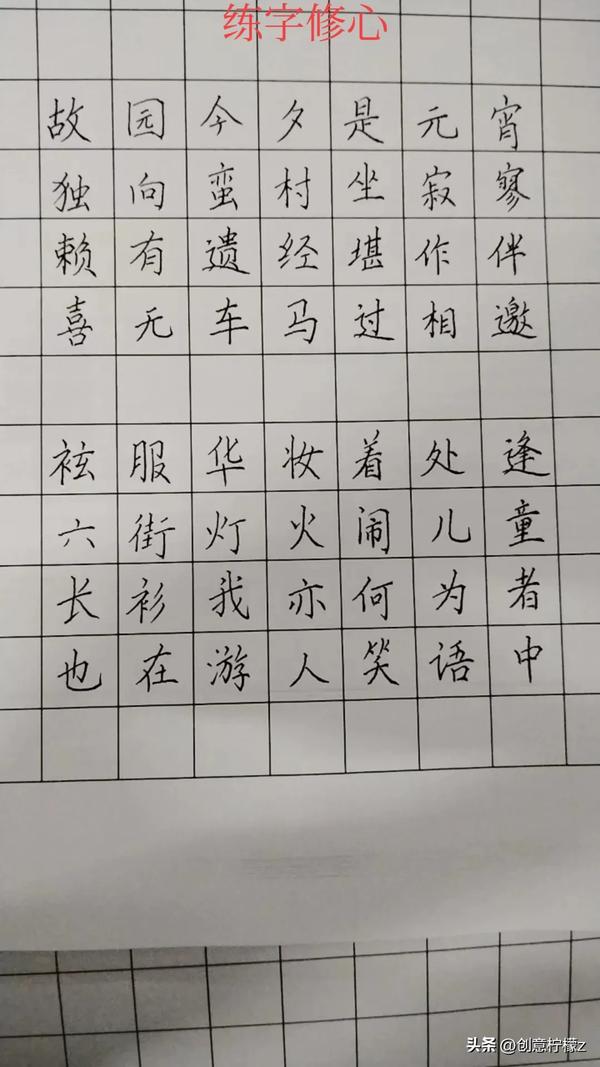 练字修心
故园今夕是元宵
独向蛮村坐寂寥
赖有遗经堪作伴
喜无车马过相邀
袨服华妆着处逢
六街灯火闹儿童
长衫我亦何为者
也在游人笑语中
头条 @创意柠檬z